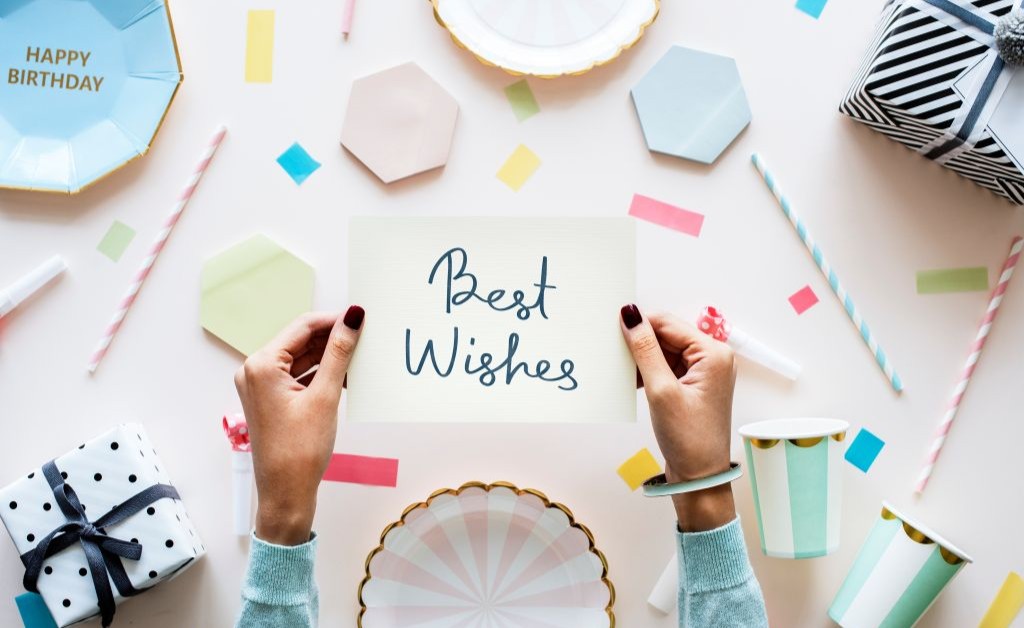 HAPPY
BIRTHDAY
Best
Wishes